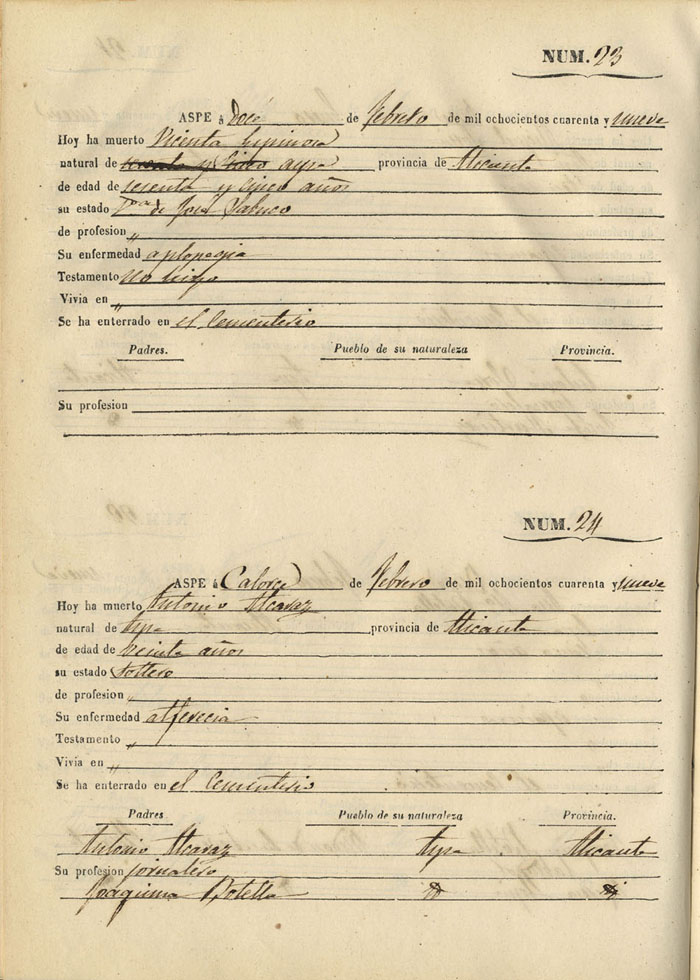 NUM. 23
ASPE á Doce de Febrero de mil ochocientos cuarenta y nueve
Hoy ha muerto Vicenta Espinosa
natural de sesenta y cinco aspe provincia de Alicante
de edad de sesenta y cinco años
su estado V.da de José Sabuco
de profesion "
Su enfermedad aplopegia
Testamento no hizo
Vivia en "
Se ha enterrado en el Cementerio
Padres. Pueblo de su naturaleza Provincia.
Su profesion
NUM. 24
ASPE á Catorce de Febrero de mil ochocientos cuarenta y nueve
Hoy ha muerto Antonio Alcaraz
natural de Aspe provincia de Alicante
de edad de veinte años
su estado Soltero
de profesion "
Su enfermedad alferecia
Testamento "
Vivia en "
Se ha enterrado en el Cementerio
Padres Pueblo de su naturaleza Provincia.
Antonio Alcaraz Aspe Alicante
Su profesion jornalero
Joaquina Botella